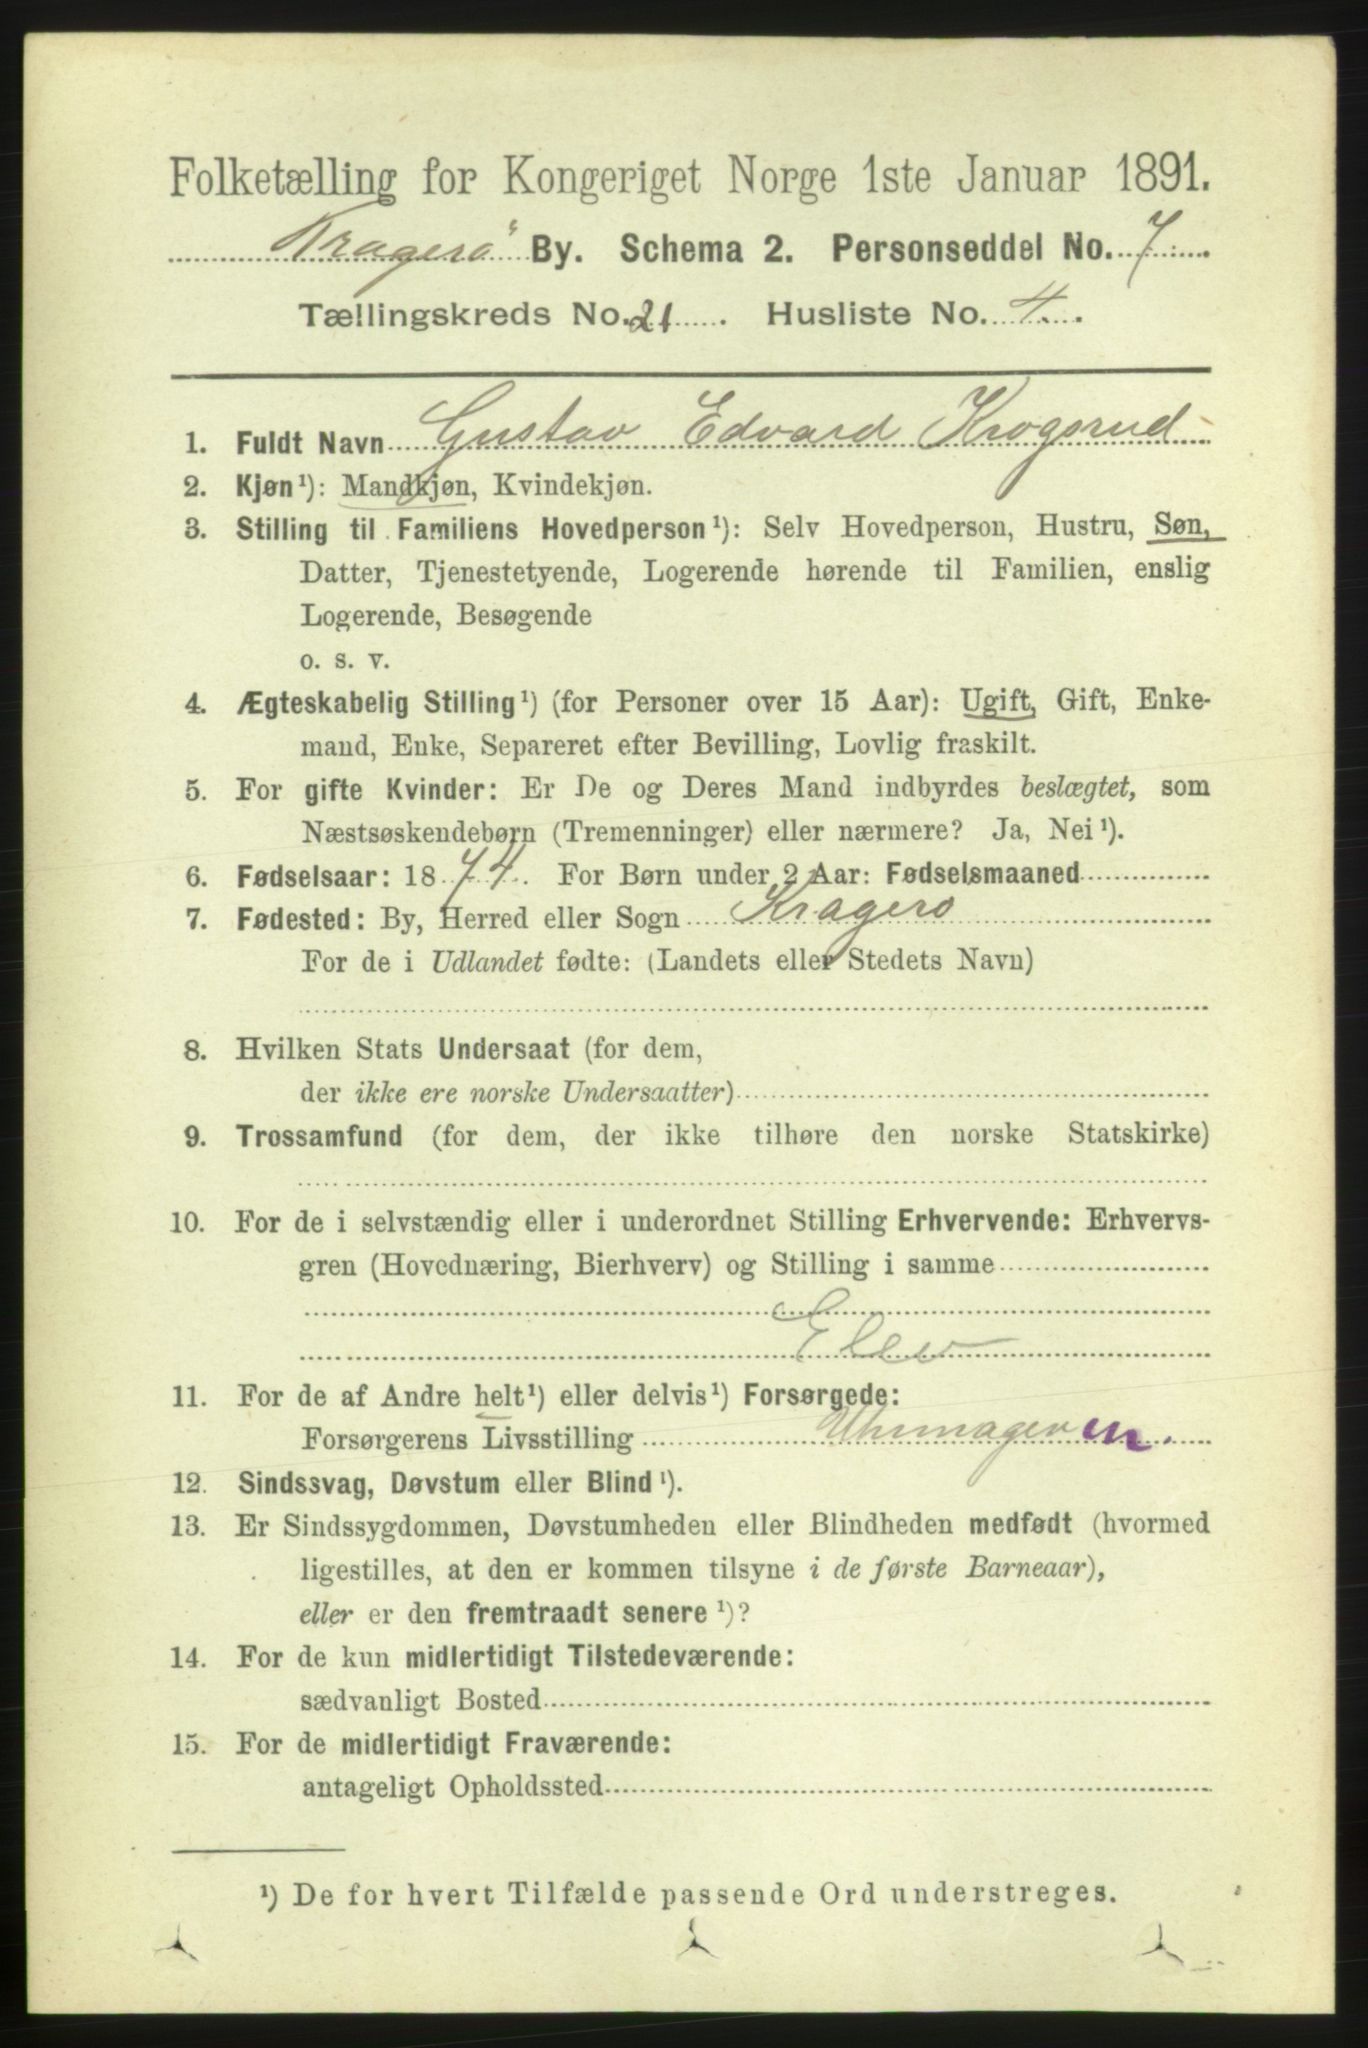 Folketælling for Kongeriget Norge 1ste Januar 1891.
Kragerø By. Schema 2. Personseddel No. 7
Tællingskreds No. 21. Husliste No. 4.
1. Fuldt Navn Gustav Edvard Krogsrud
2. Kjøn¹): Mandkjøn, Kvindekjøn.
3. Stilling til Familiens Hovedperson¹): Selv Hovedperson, Hustru, Søn,
Datter, Tjenestetyende, Logerende hørende til Familien, enslig
Logerende, Besøgende
o. s. v.
4. Ægteskabelig Stilling¹) (for Personer over 15 Aar): Ugift, Gift, Enke-
mand, Enke, Separeret efter Bevilling, Lovlig fraskilt.
5. For gifte Kvinder: Er De og Deres Mand indbyrdes beslægtet, som
Næstsøskendebørn (Tremenninger) eller nærmere? Ja, Nei¹).
6. Fødselsaar: 1874. For Børn under 2 Aar: Fødselsmaaned
7. Fødested: By, Herred eller Sogn Kragerø
For de i Udlandet fødte: (Landets eller Stedets Navn)
8. Hvilken Stats Undersaat (for dem,
der ikke ere norske Undersaatter)
9. Trossamfund (for dem, der ikke tilhøre den norske Statskirke)
10. For de i selvstændig eller i underordnet Stilling Erhvervende: Erhvervs-
gren (Hovednæring, Bierhverv) og Stilling i samme
Elev
11. For de af Andre helt¹) eller delvis¹) Forsørgede:
Forsørgerens Livsstilling Uhrmager m.
12. Sindssvag, Døvstum eller Blind¹).
13. Er Sindssygdommen, Døvstumheden eller Blindheden medfødt (hvormed
ligestilles, at den er kommen tilsyne i de første Barneaar),
eller er den fremtraadt senere¹)?
14. For de kun midlertidigt Tilstedeværende:
sædvanligt Bosted
15. For de midlertidigt Fraværende:
antageligt Opholdssted
¹) De for hvert Tilfælde passende Ord understreges.